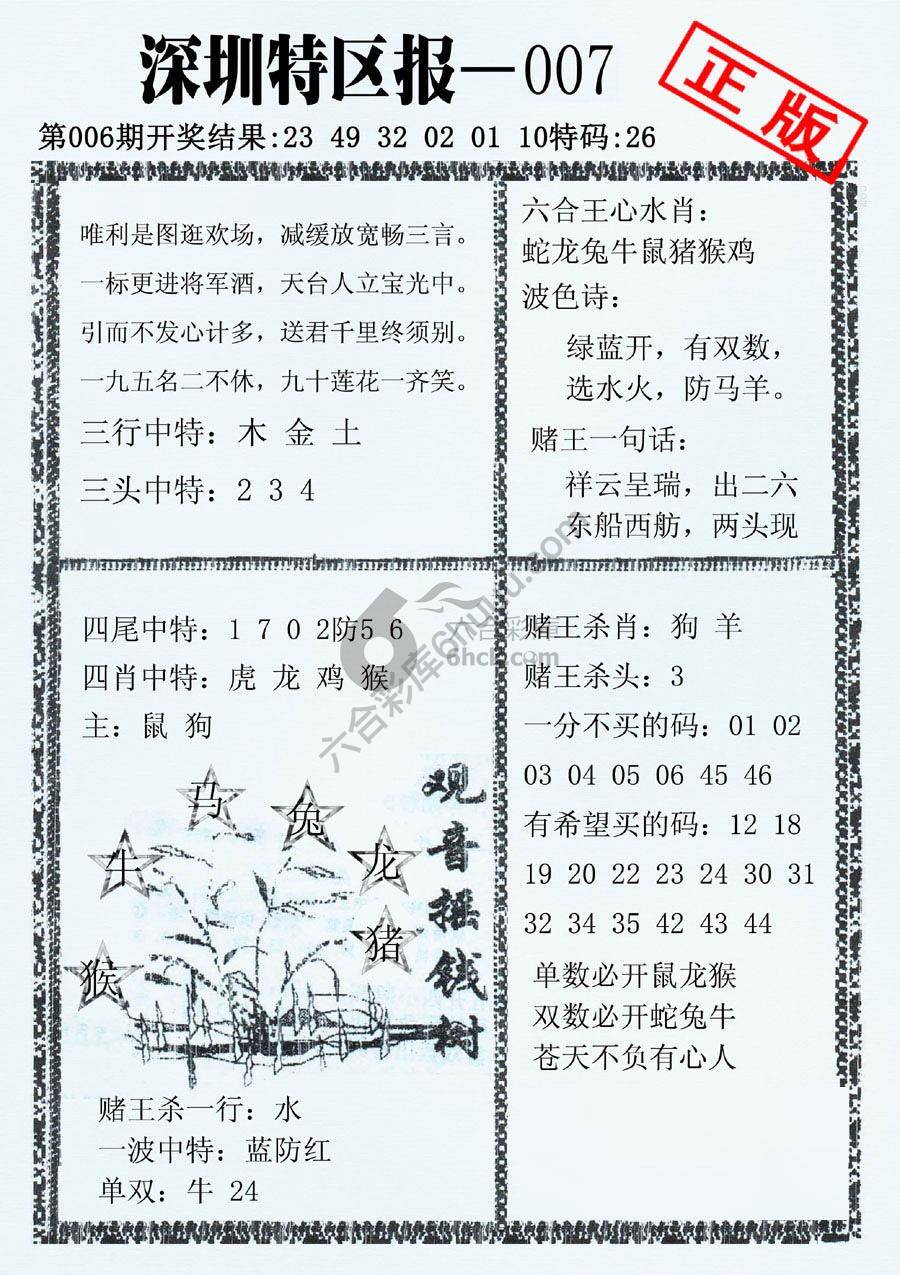 深圳特区报—007
正版
第006期开奖结果:23 49 32 02 01 10特码:26
唯利是图逛欢场，减缓放宽畅三言。
一标更进将军酒，天台人立宝光中。
引而不发心计多，送君千里终须别。
一九五名二不休，九十莲花一齐笑。
三行中特：木 金 土
三头中特：2 3 4
六合王心水肖：
蛇龙兔牛鼠猪猴鸡
波色诗：
绿蓝开，有双数，
选水火，防马羊。
赌王一句话：
祥云呈瑞，出二六
东船西舫，两头现
四尾中特：1 7 0 2防5 6
四肖中特：虎 龙 鸡 猴
主：鼠 狗
马
兔
牛
龙
猪
猴
观音摇钱树
赌王杀一行：水
一波中特：蓝防红
单双：牛 24
赌王杀肖：狗 羊
赌王杀头：3
一分不买的码：01 02
03 04 05 06 45 46
有希望买的码：12 18
19 20 22 23 24 30 31
32 34 35 42 43 44
单数必开鼠龙猴
双数必开蛇兔牛
苍天不负有心人
六合彩库